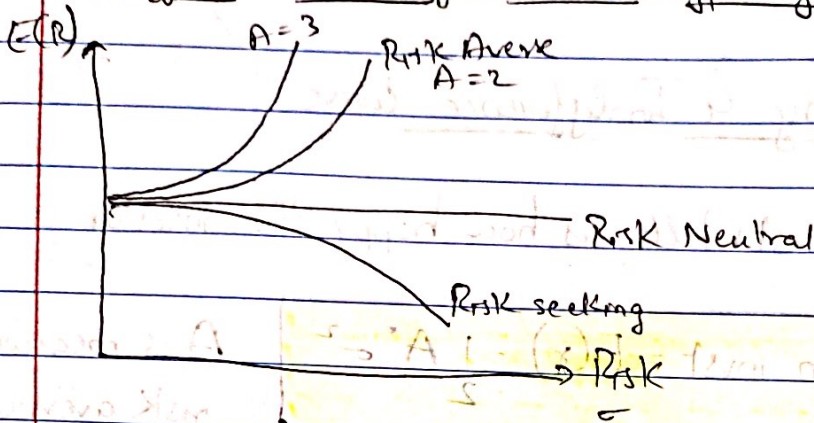 E(R)
A=3
Risk Averse
A=2
Risk Neutral
Risk seeking
Risk
σ